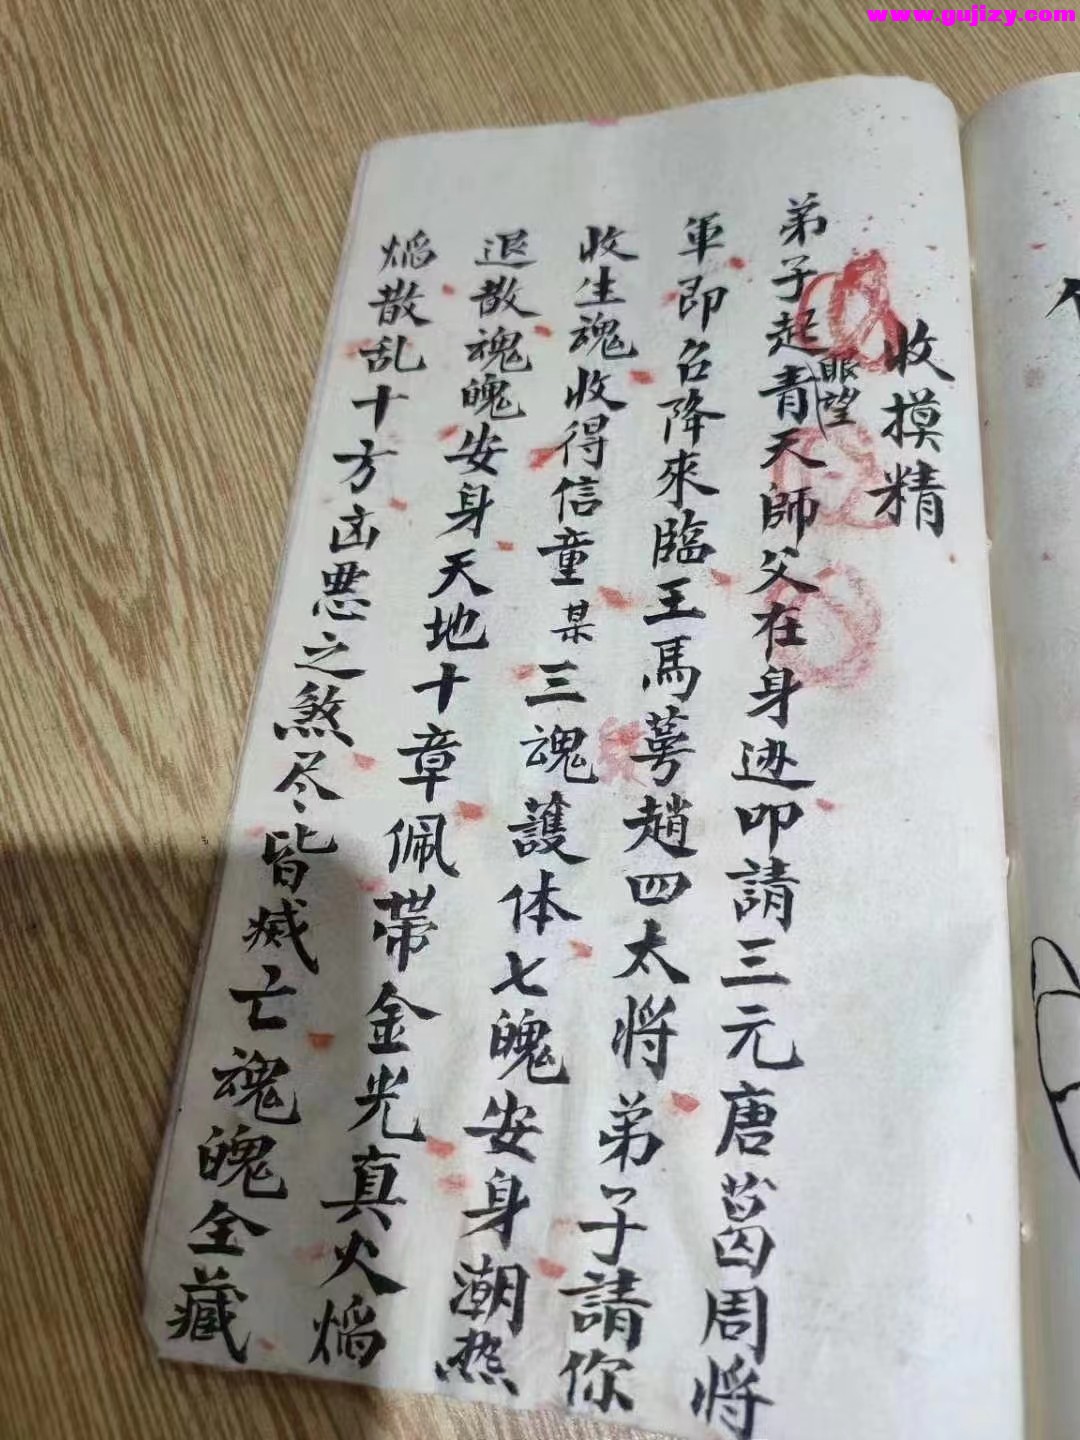 www.gujizy.com
收摸精
弟子起眼望青天師父在身边叩請三元唐葛周将
軍即召降來臨王馬萼趙四太将弟子請你
收生魂收得信童某三魂護体七魄安身潮热
退散魂魄安身天地十章佩帶金光真火焰
焰散乱十方凶悪之煞尽皆烕亡魂魄全藏